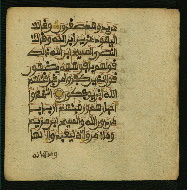 عن يد وهم صغرون وقالت
اليهود عزير ابن الله وقالت
النصرى المسيح ابن الله ذلك
قولهم بافوههم يضهون
قول الذين كفروا من قبل قتلهم
الله انى يوفكون اتخذوا
احبارهم ورهبنهم اربابا
من دون الله والمسيح ابن مريم
وما امروا الا ليعبدوا الها